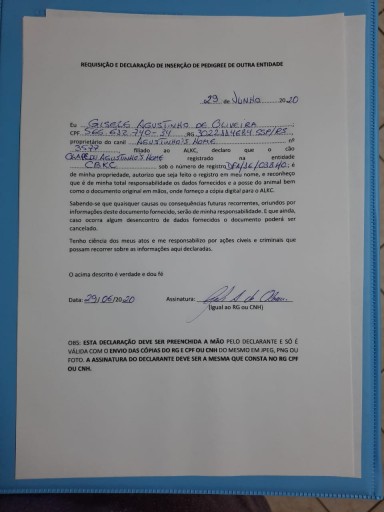 REQUISIÇÃO E DECLARAÇÃO DE INSERÇÃO DE PEDIGREE DE OUTRA ENTIDADE
29 de JUNHO 2020
Eu GISELE AGUSTINHO DE OLIVEIRA
CPF RG
proprietário do canil AGUSTINHO'S HOME nº
3577 filiado ao ALKC, declaro que o cão
AGUSTINHO'S HOME registrado na entidade
CBKC sob o número de registro e
de minha propriedade, autorizo que seja feito o registro em meu nome, e reconheço
que é de minha total responsabilidade os dados fornecidos e a posse do animal bem
como o documento original em mãos, onde forneço a cópia digital para o ALKC.
Sabendo-se que quaisquer causas ou consequências futuras recorrentes, oriundos por
informações deste documento fornecido, serão de minha responsabilidade. E que ainda,
caso ocorra algum desencontro de dados fornecidos o documento poderá ser
cancelado.
Tenho ciência dos meus atos e me responsabilizo por ações cíveis e criminais que
possam recorrer sobre as informações aqui declaradas.
O acima descrito é verdade e dou fé
Data: 29/06/2020 Assinatura:
(Igual ao RG ou CNH)
OBS: ESTA DECLARAÇÃO DEVE SER PREENCHIDA A MÃO PELO DECLARANTE E SÓ É
VÁLIDA COM O ENVIO DAS CÓPIAS DO RG E CPF OU CNH DO MESMO EM JPEG, PNG OU
FOTO. A ASSINATURA DO DECLARANTE DEVE SER A MESMA QUE CONSTA NO RG CPF
OU CNH.